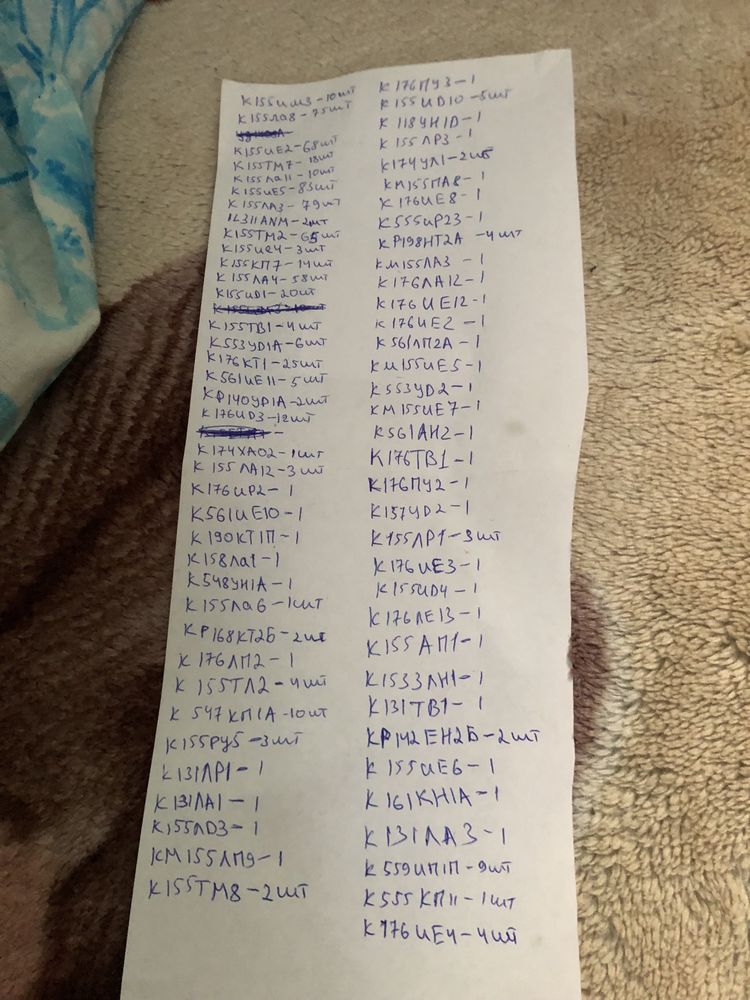 К155ИМ3-10шт
К155ЛА8-75шт
К155ИЕ2-68шт
К155ТМ7-18шт
К155ЛА11-10шт
К155ИЕ5-83шт
К155ЛА3-79шт
IL311ANM-2шт
К155ТМ2-65шт
К155ИЕ4-3шт
К155КП7-14шт
К155ЛА4-58шт
К155ИД1-20шт
К155ТВ1-4шт
К553УД1А-6шт
К176КТ1-25шт
К561ИЕ11-5шт
КР140УД1А-2шт
К176ИД3-12шт
К174ХА02-1шт
К155ЛА12-3шт
К176ИР2-1
К561ИЕ10-1
К190КТ1П-1
К158ЛА1-1
К548УН1А-1
К155ЛА6-1шт
КР168КТ2Б-2шт
К176ЛП2-1
К155ТЛ2-4шт
К547КП1А-10шт
К155РУ5-3шт
К131ЛР1-1
К131ЛА1-1
К155ЛD3-1
КМ155ЛП9-1
К155ТМ8-2шт
К176ПУ3-1
К155ИD10-5шт
К118УН1D-1
К155ЛР3-1
К174УЛ1-2шт
КМ155ПА8-1
К176ИЕ8-1
К555ИР23-1
КР198НТ2А-4шт
КМ155ЛА3-1
К176ЛА12-1
К176ИЕ12-1
К176ИЕ2-1
К561ЛП2А-1
КМ155ИЕ5-1
К553УD2-1
КМ155ИЕ7-1
К561АН2-1
К176ТВ1-1
К176ПУ2-1
К157УD2-1
К155ЛР1-3шт
К176ИЕ3-1
К155ИD4-1
К176ЛЕ13-1
К155АП1-1
К1533ЛН1-1
К131ТВ1-1
КР142ЕН2Б-2шт
К155ИЕ6-1
К161КН1А-1
К131ЛА3-1
К559ИП1П-9шт
К555КП11-1шт
К176ИЕ4-4шт